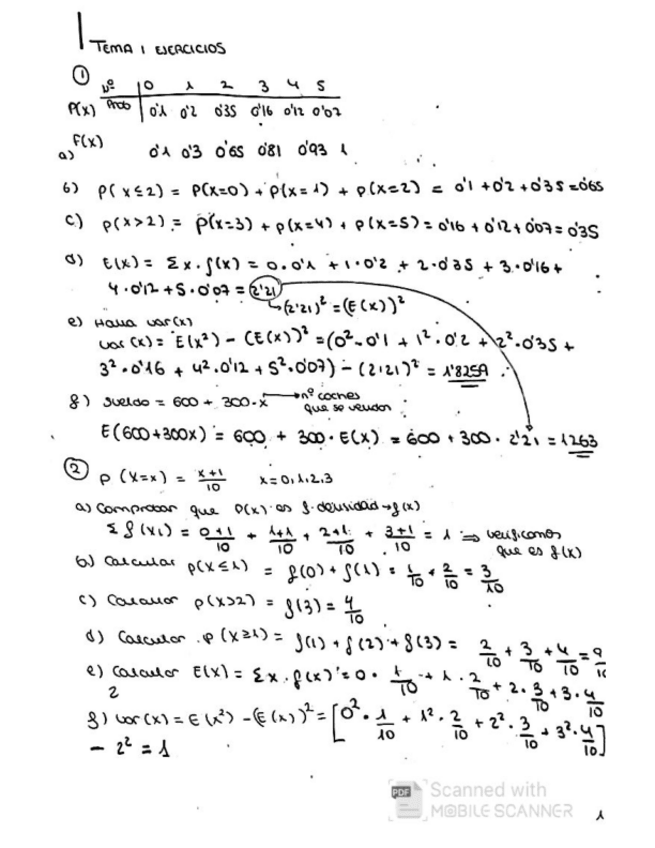 TEMA 1 EJERCICIOS
① Nº 0 1 2 3 4 5
P(x) Prob 0'1 0'2 0'35 0'16 0'12 0'07
F(x)
a) 0'1 0'3 0'65 0'81 0'93 1
b) P(x≤2) = P(x=0) + P(x=1) + P(x=2) = 0'1 + 0'2 + 0'35 = 0'65
c) P(x>2) = P(x=3) + P(x=4) + P(x=5) = 0'16 + 0'12 + 0'07 = 0'35
d) E(x) = Σx·f(x) = 0·0'1 + 1·0'2 + 2·0'35 + 3·0'16 +
4·0'12 + 5·0'07 = 2'21
→ (2'21)² = (E(x))²
e) Halla var(x)
var(x) = E(x²) - (E(x))² = (0²·0'1 + 1²·0'2 + 2²·0'35 +
3²·0'16 + 4²·0'12 + 5²·0'07) - (2'21)² = 1'8259
f) sueldo = 600 + 300·x → nº coches
que se venden
E(600+300x) = 600 + 300·E(x) = 600 + 300·2'21 = 1263
② P(X=x) = x+1/10 x=0,1,2,3
a) Comprobar que P(x) es f. densidad → f(x)
Σ f(xi) = 0+1/10 + 1+1/10 + 2+1/10 + 3+1/10 = 1 ⇒ verificamos
que es f(x)
b) Calcular P(x≤1) = f(0) + f(1) = 1/10 + 2/10 = 3/10
c) Calcular P(x>2) = f(3) = 4/10
d) Calcular P(x≥1) = f(1) + f(2) + f(3) = 2/10 + 3/10 + 4/10 = 9/10
e) Calcular E(x) = Σx·f(x) = 0·1/10 + 1·2/10 + 2·3/10 + 3·4/10
2
f) var(x) = E(x²) - (E(x))² = [0²·1/10 + 1²·2/10 + 2²·3/10 + 3²·4/10]
- 2² = 1
PDF Scanned with
MOBILE SCANNER
1